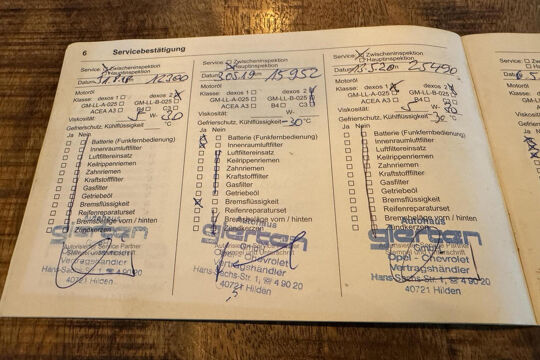 6 Servicebestätigung
Service: Zwischeninspektion
Hauptinspektion
Datum 12300
Motoröl
Klasse: dexos 1 dexos 2
GM-LL-A-025 GM-LL-B-025
ACEA A3 B4 C3
Viskosität: 5 W- 30
Gefrierschutz, Kühlflüssigkeit °C
Ja Nein
Batterie (Funkfernbedienung)
Innenraumluftfilter
Luftfiltereinsatz
Keilrippenriemen
Zahnriemen
Kraftstofffilter
Gasfilter
Getriebeöl
Bremsflüssigkeit
Reifenreparaturset
Bremsbeläge vorn / hinten
Zündkerzen
Autorisierter Service Partner
Vertragshändler
Hans-Sachs-Str. 1, ☎ 4 90 20
40721 Hilden
Service: Zwischeninspektion
Hauptinspektion
Datum 30519 km 15952
Motoröl
Klasse: dexos 1 dexos 2
GM-LL-A-025 GM-LL-B-025
ACEA A3 B4 C3
Viskosität: W-
Gefrierschutz, Kühlflüssigkeit -30 °C
Ja Nein
Batterie (Funkfernbedienung)
Innenraumluftfilter
Luftfiltereinsatz
Keilrippenriemen
Zahnriemen
Kraftstofffilter
Gasfilter
Getriebeöl
Bremsflüssigkeit
Reifenreparaturset
Bremsbeläge vorn / hinten
Zündkerzen
Autohaus
gierten
GmbH
Opel - Chevrolet
Vertragshändler
Hans-Sachs-Str. 1, ☎ 4 90 20
40721 Hilden
Service: Zwischeninspektion
Hauptinspektion
Datum 15.520 km 25490
Motoröl
Klasse: dexos 1 dexos 2
GM-LL-A-025 GM-LL-B-025
ACEA A3 B4 C3
Viskosität: W- 30
Gefrierschutz, Kühlflüssigkeit -30 °C
Ja Nein
Batterie (Funkfernbedienung)
Innenraumluftfilter
Luftfiltereinsatz
Keilrippenriemen
Zahnriemen
Kraftstofffilter
Gasfilter
Getriebeöl
Bremsflüssigkeit
Reifenreparaturset
Bremsbeläge vorn / hinten
Zündkerzen
Autohaus
gierten
GmbH
Opel - Chevrolet
Vertragshändler
Hans-Sachs-Str. 1, ☎ 4 90 20
40721 Hilden